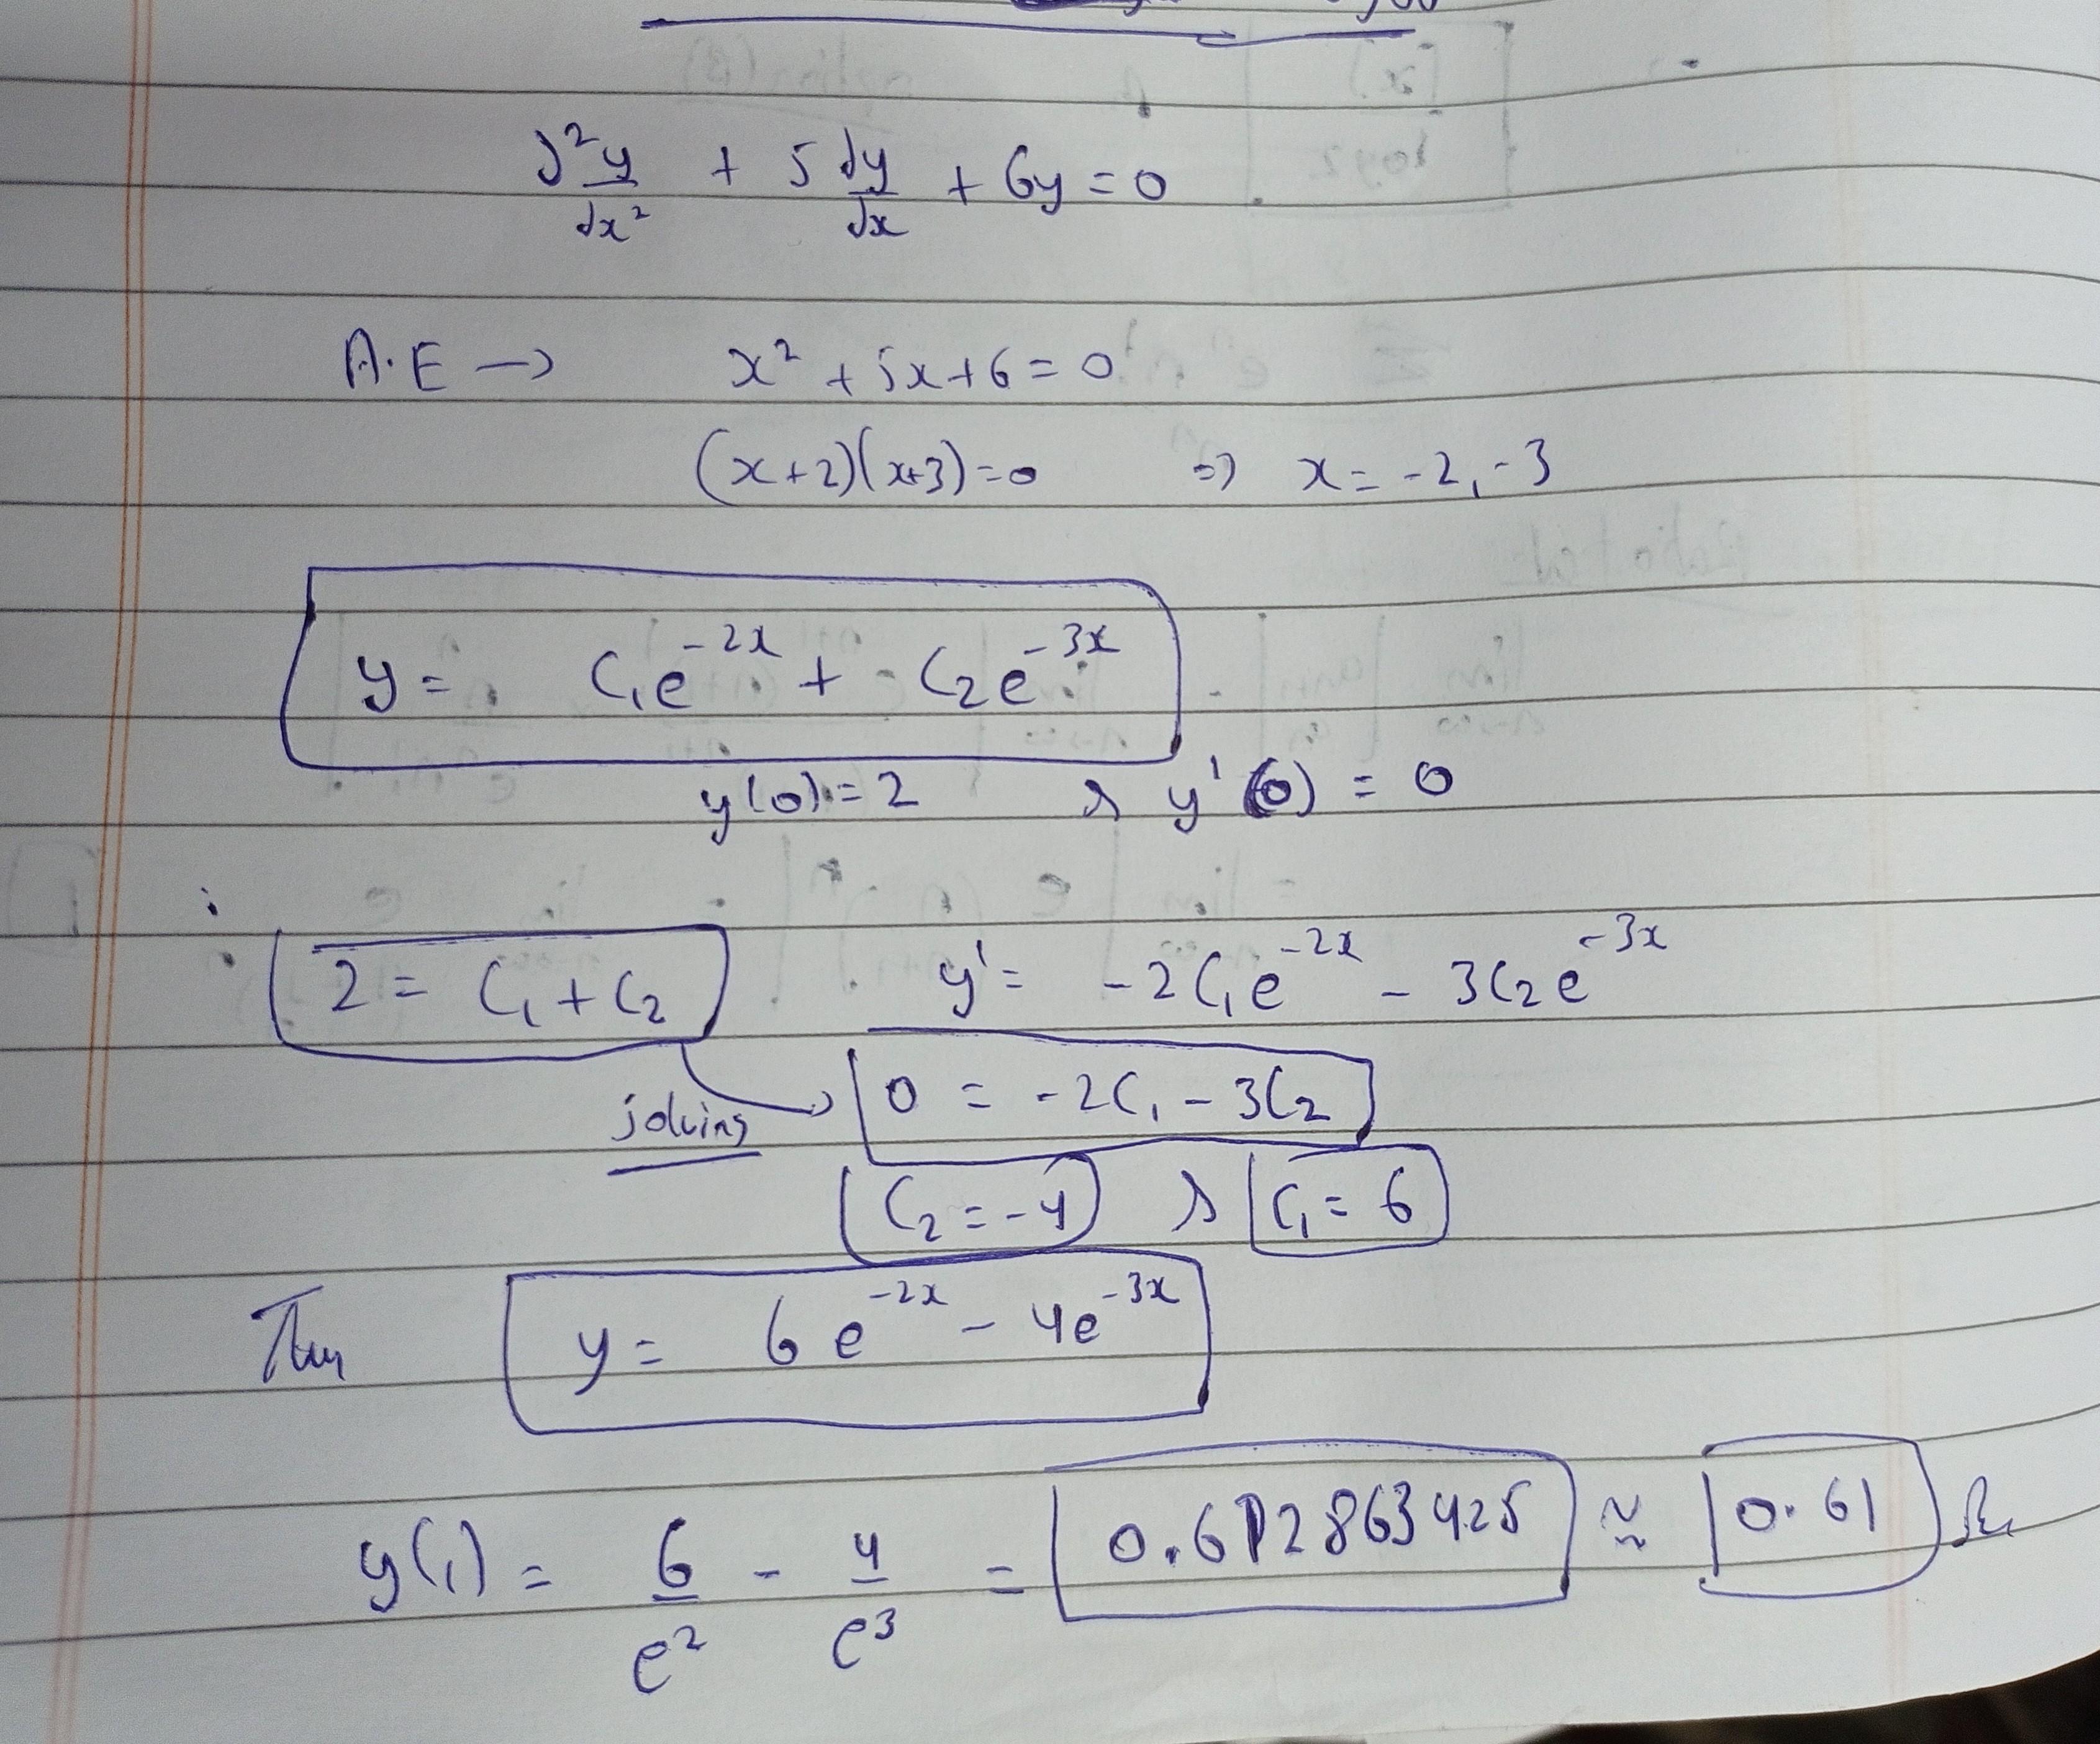 d²y/dx² + 5 dy/dx + 6y = 0
A.E → x² + 5x + 6 = 0
(x+2)(x+3) = 0 ⇒ x = -2, -3
y = C₁e^{-2x} + C₂e^{-3x}
y(0) = 2 & y'(0) = 0
2 = C₁ + C₂ y' = -2C₁e^{-2x} - 3C₂e^{-3x}
solving → 0 = -2C₁ - 3C₂
C₂ = -4 & C₁ = 6
Then y = 6e^{-2x} - 4e^{-3x}
y(1) = 6/e² - 4/e³ = 0.612863425 ≅ 0.61